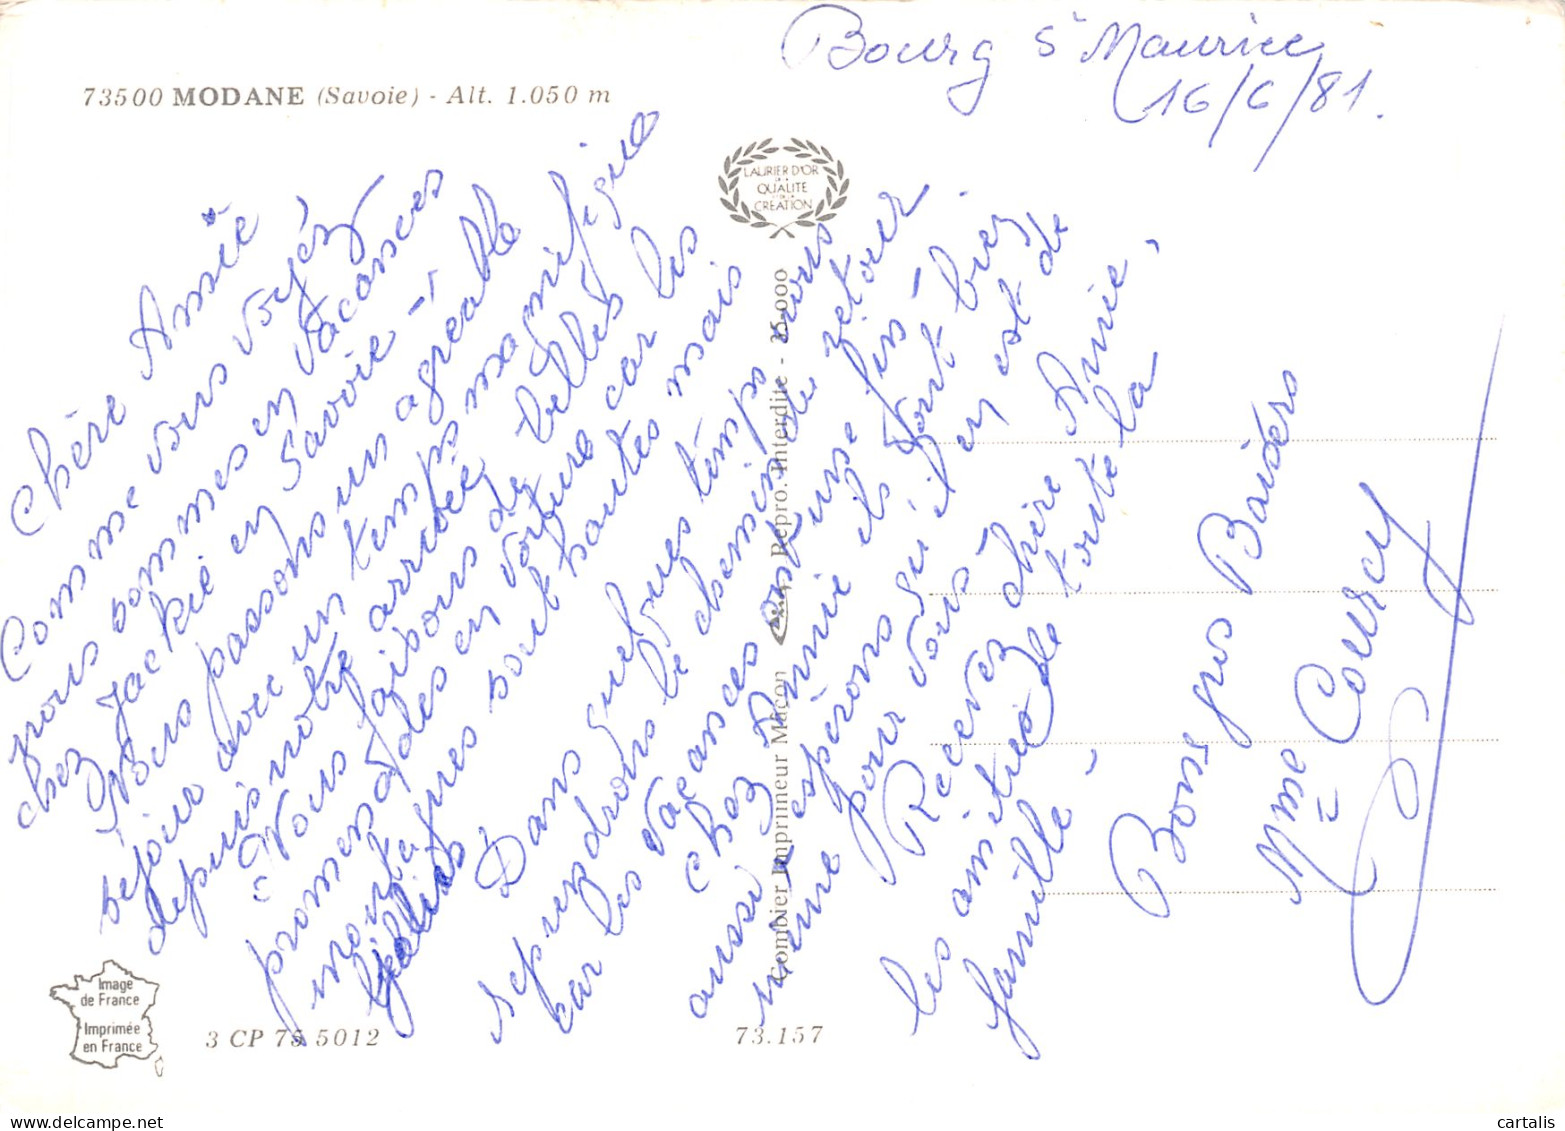 Bourg St Maurice
16/6/81.
73500 MODANE (Savoie) - Alt. 1.050 m
LAURIER D'OR
DE LA
QUALITÉ
ET DE LA
CRÉATION
Chère Annie
Comme vous voyéz
nous sommes en vacances
chez Jackie en Savoie -
Nous passons un agréable
séjour avec un temps magnifique
depuis notre arrivée
Nous faisons de belles
promenades en voiture car les
montagnes sont hautes mais
belles
Dans quelques temps nous
reprendrons le chemin du retour
car les vacances ont une fin -
chez Annie ils vont bien
aussi espérons qu'il en est de
même pour vous chère Annie,
Recevez de toute la
famille les amitiés -
Bons gros Baisers
Mme Courcy
Combier Imprimeur Mâcon
Repro. Interdite - 25.000
Image
de France
Imprimée
en France
3 CP 75 5012
73.157
cartalis